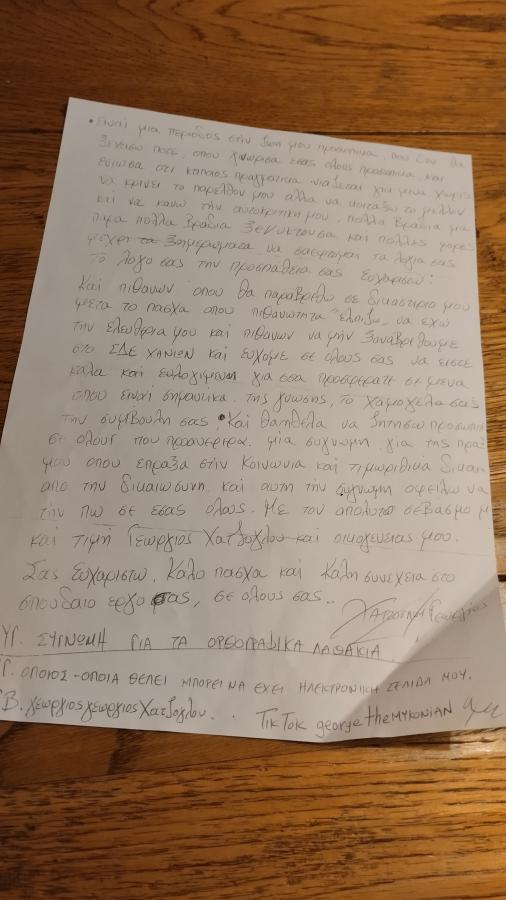 • Ειναι μια περιοδος στην ζωη μου προσωπικα, που δεν θα
ξεχασω ποτε, οπου γνωρισα εσας ολους προσωπικα, και
ενιωσα οτι καποιος πραγματικα νιαζεται για μενα χωρις
να κρινει το παρελθον μου αλλα να κοιταξω το μελλον
και να κανω την αυτοκριτικη μου, πολλα βραδια για
πολλα βραδια ξενυκτουσα και πολλες φορες
μεχρι τα ξημερωματα να σκεφτομαι τα λογια σας
το λογο σας την προσπαθεια σας ευχαριστω:
Και πιθανων οπου θα παραβρεθω σε δικαστηριο μου
μετα το πασχα οπου πιθανωτητα "ελπιζω" να εχω
την ελευθερια μου και πιθανων να μην ξαναβρεθουμε
στο ΣΔΕ ΧΑΝΙΩΝ και ευχομε σε ολους σας να ειστε
καλα και ευλογιμενη για οσα προσφερατε σε μενα
οπου ειναι σημαντικα. της γνωσης, το χαμογελο σας
την συμβουλη σας • Και θαηθελα να ζητησω προσωπικα
σε ολους που προανεφερα. μια συγνωμη για της πραξ
μου οπου επραξα στην κοινωνια και τιμωριθικα δικαι
απο την δικαιωσυνη και αυτη την συγνωμη οφειλω να
την πω σε εσας ολους. Με τον απολυτο σεβασμο μ
και τιμη Γεωργιος Χατζογλου και οικογενειας μου.
Σας Ευχαριστω, Καλο πασχα και Καλη συνεχεια στο
σπουδαιο εργο σας, σε ολους σας..
Χατζογλου Γεωργιος
ΥΓ. ΣΥΓΝΩΜΗ ΓΙΑ ΤΑ ΟΡΘΟΓΡΑΦΙΚΑ ΛΑΘΑΚΙΑ
Γ. ΟΠΟΙΟΣ-ΟΠΟΙΑ ΘΕΛΕΙ ΜΠΟΡΕΙ ΝΑ ΕΧΕΙ ΗΛΕΚΤΡΟΝΙΚΗ ΣΕΛΙΔΑ ΜΟΥ.
B. γεωργιος γεωργιος Χατζογλου. . TikTok george the MYKONIAN